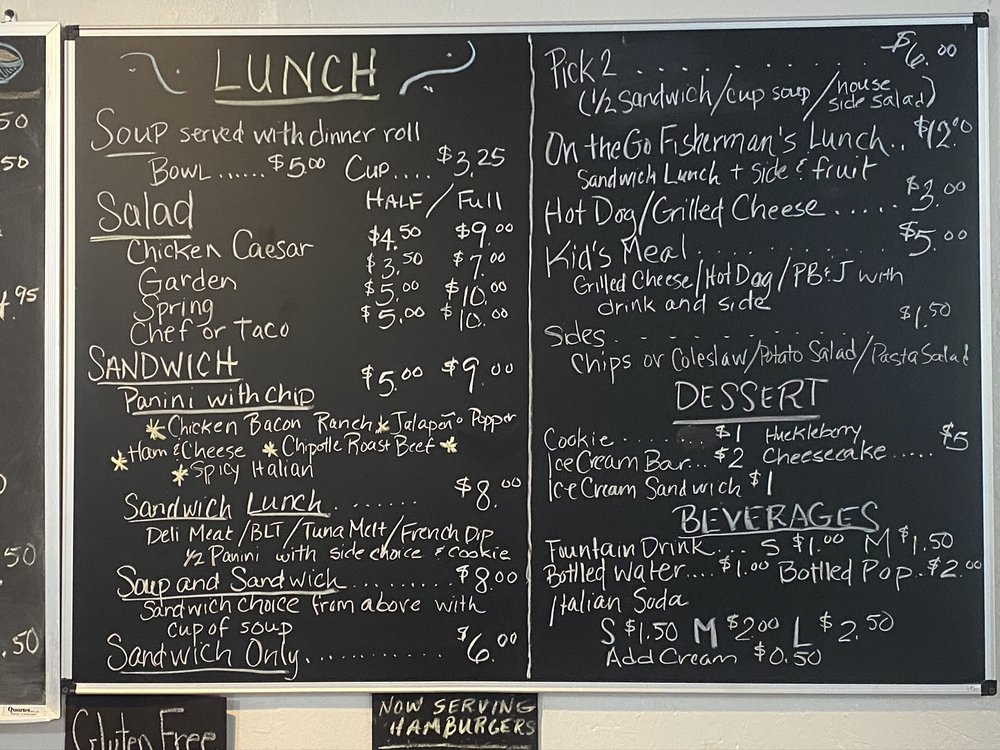 LUNCH
Soup served with dinner roll
Bowl...... $5.00 Cup.... $3.25
Salad HALF / Full
Chicken Caesar $4.50 $9.00
Garden $3.50 $7.00
Spring $5.00 $10.00
Chef or Taco $5.00 $10.00
SANDWICH
Panini with chip $5.00 $9.00
Chicken Bacon Ranch Jalapeño Popper
Ham & Cheese Chipotle Roast Beef
Spicy Italian
Sandwich Lunch....... $8.00
Deli Meat/BLT/Tuna Melt/French Dip
1/2 Panini with side choice & cookie
Soup and Sandwich.......... $8.00
Sandwich choice from above with
cup of soup
Sandwich Only............ $6.00
Pick 2 ............ $6.00
(1/2 Sandwich/cup soup/house
side salad)
On the Go Fisherman's Lunch.. $12.00
Sandwich Lunch + side & fruit
Hot Dog/Grilled Cheese ..... $3.00
Kid's Meal ............ $5.00
Grilled Cheese/Hot Dog/PB&J with
drink and side
Sides............... $1.50
Chips or Coleslaw/Potato Salad/Pasta Salad
DESSERT
Cookie ........ $1 Huckleberry
Ice Cream Bar... $2 Cheesecake..... $5
Ice Cream Sandwich $1
BEVERAGES
Fountain Drink... S $1.00 M $1.50
Bottled Water.... $1.00 Bottled Pop.. $2.00
Italian Soda
S $1.50 M $2.00 L $2.50
Add Cream $0.50
Gluten Free
NOW SERVING
HAMBURGERS
50
50
.95
50
.50
Quartet